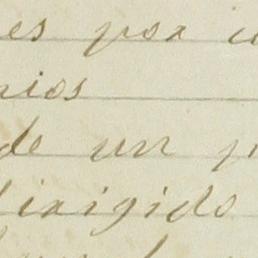 es por
nios
de un
dirigido